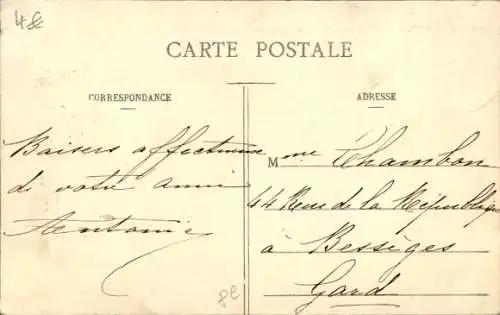 CARTE POSTALE
CORRESPONDANCE
ADRESSE
Baisers affectueux
de votre amie
Antonie
Mme Chambon
44 Rue de la République
à Bessèges
Gard
8E